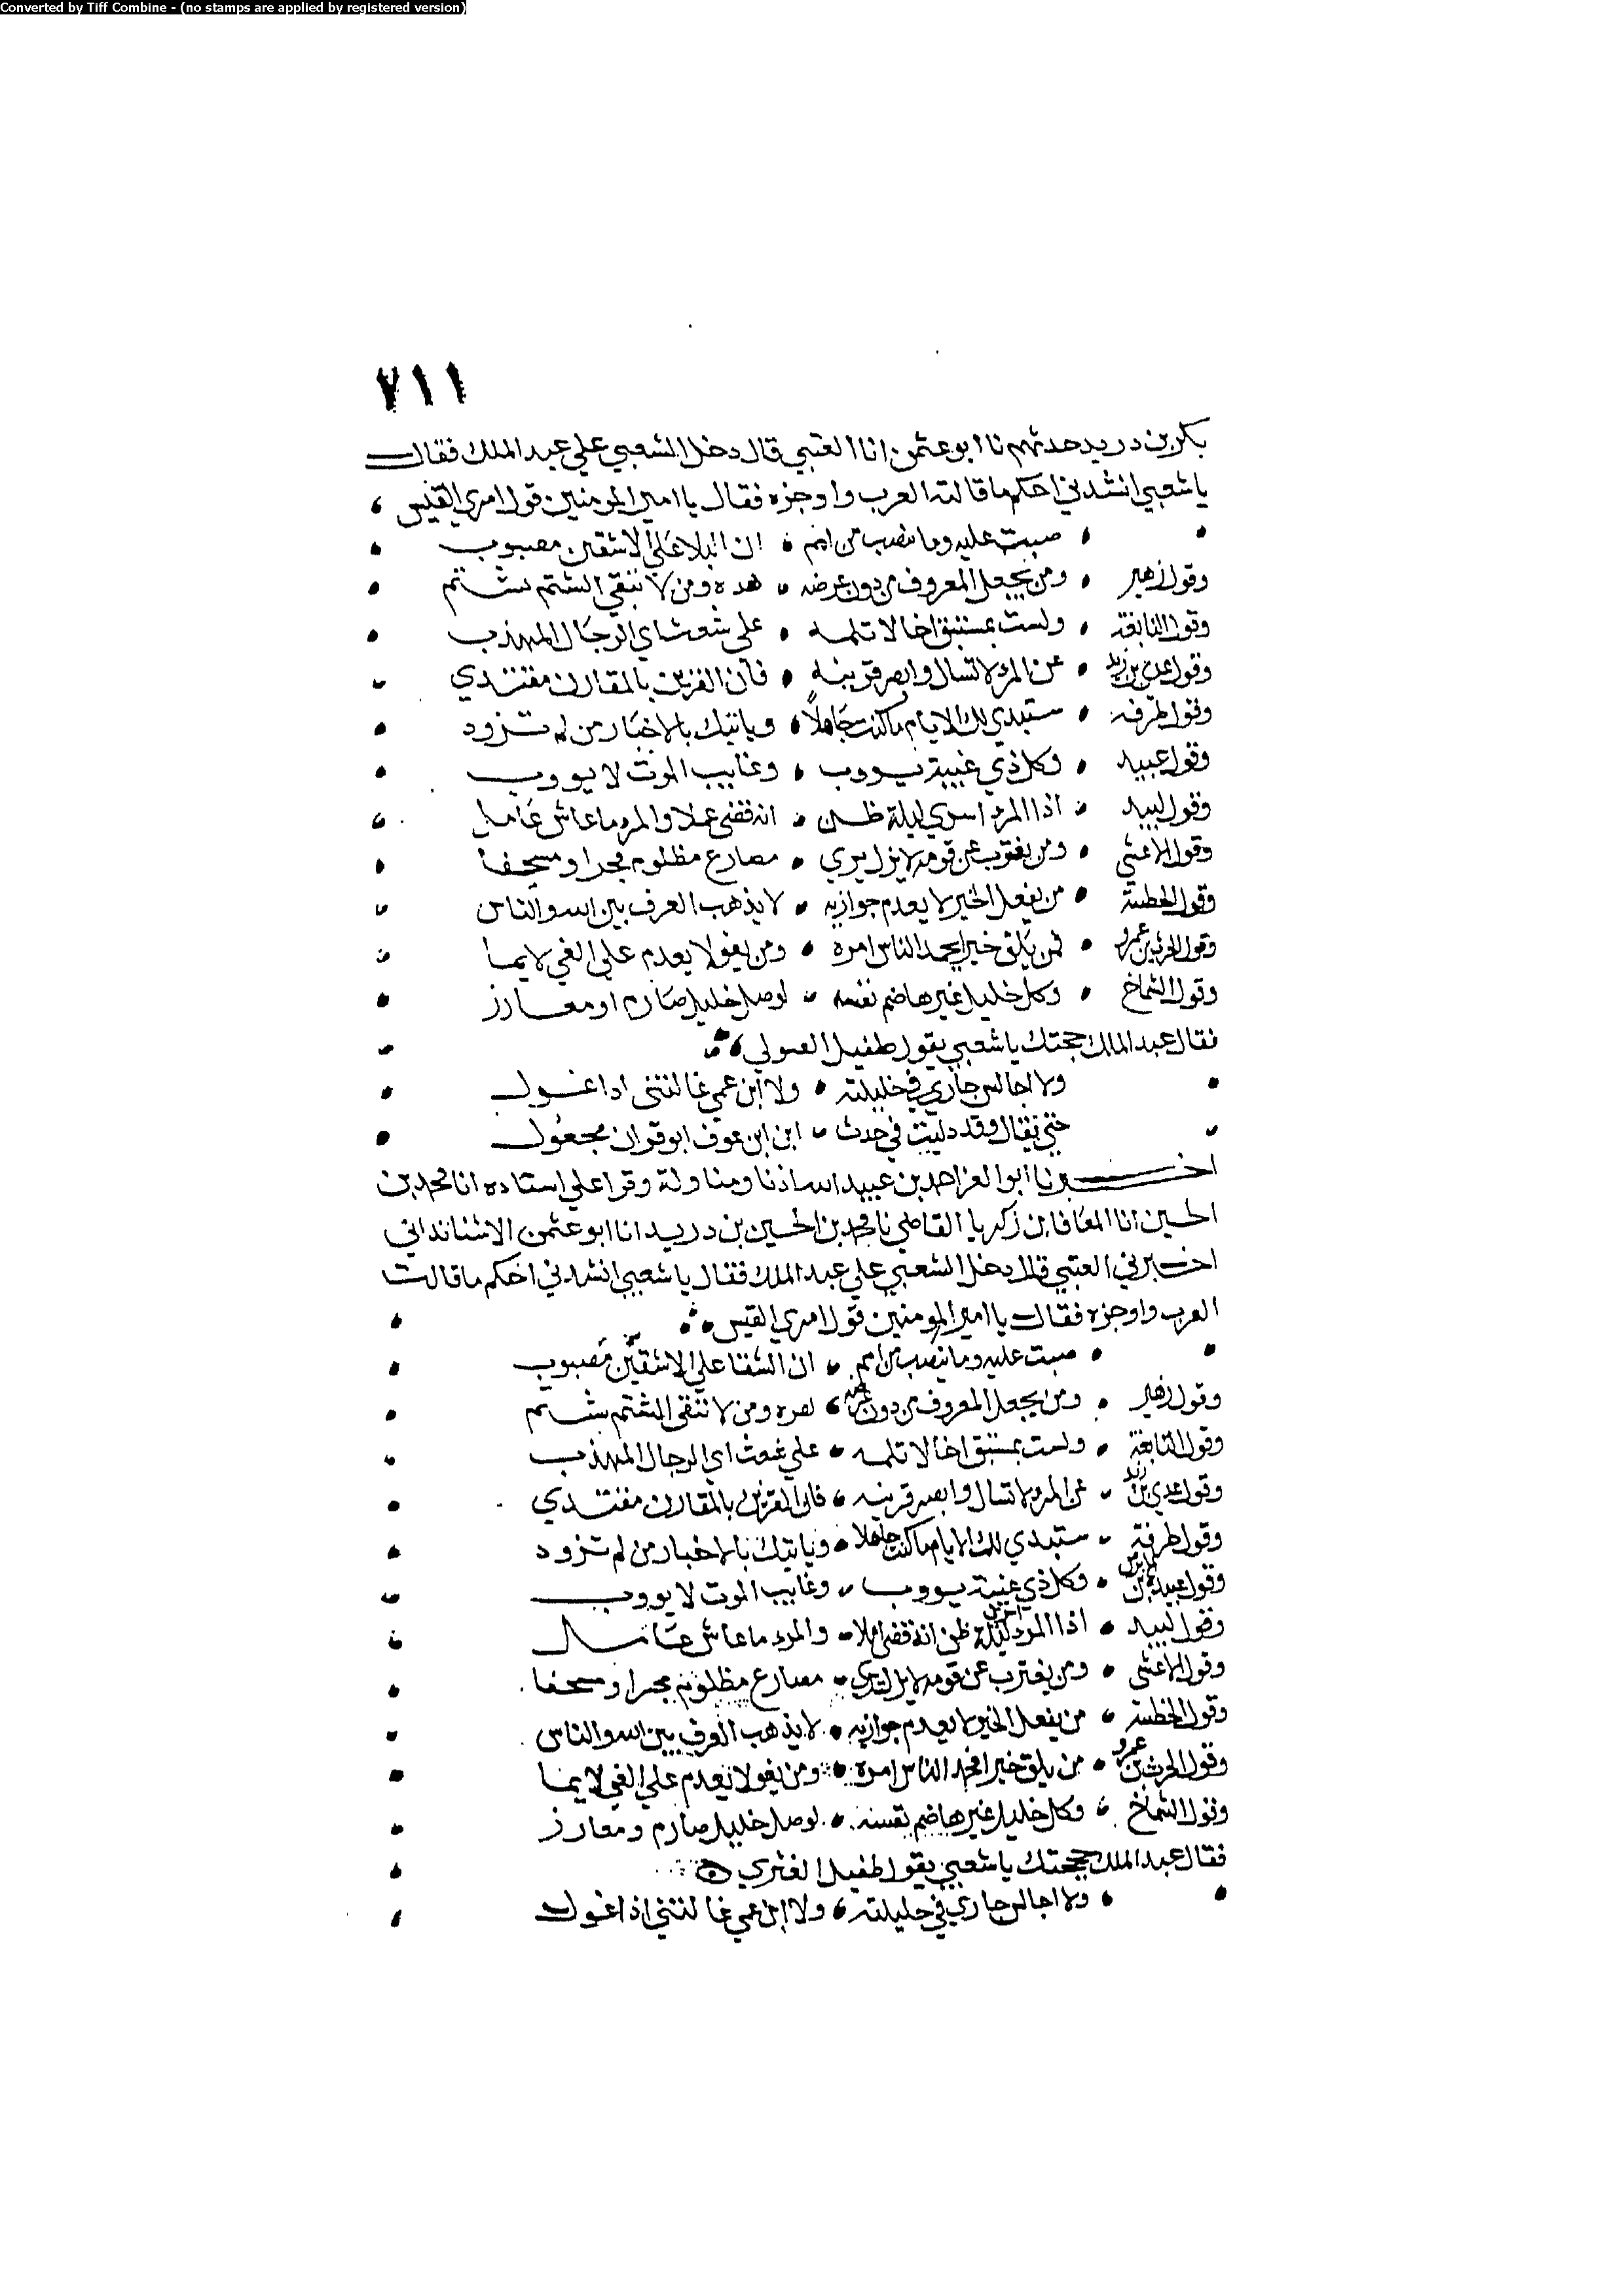 Converted by Tiff Combine - (no stamps are applied by registered version)
٧١١
بكر بن دريد حدثهم نا ابو عثمن انا العتبي قال دخل الشعبي علي عبد الملك فقال
يا شعبي انشدني احكم ما قالته العرب واوجزه فقال يا امير المومنين قول امري القيس
صبت عليه وما تنصب من امم ان البلا علي الاشقين مصبوب
وقول زهير ومن يجعل المعروف من دون عرضه يفره ومن لا تتقي الشتم يشتم
وقول النابغة ولست بمستبق اخا لا تلمه علي شعث اي الرجال المهذب
وقول عدي بن زيد عن المرء لا تسال وابصر قرينه فان القرين بالمقارن مقتدي
وقول طرفة ستبدي لك الايام ما كنت جاهلاً وياتيك بالاخبار من لم تزود
وقول عبيد وكل ذي غيبة يووب وغايب الموت لا يووب
وقول لبيد اذا المرء اسري ليلة ظن انه قضي عملا والمرء ما عاش عامل
وقول الاعشي ومن يغترب عن قومه لا يزل يري مصارع مظلوم مجرا ومسحبا
وقول الحطية من يفعل الخير لا يعدم جوازيه لا يذهب العرف بين الله والناس
وقول الحرث بن عمرو فمن يلق خيرا يحمد الناس امره ومن يغو لا يعدم علي الغي لايما
وقول الشماخ وكل خليل غير هاضم نفسه لوصل خليل صارم او معارز
فقال عبد الملك حججتك يا شعبي بقول طفيل
ولا اجالس جاري في خليلته ولا ابن عمي غالتني اذا غول
حتي يقال وقد دليت في جدث اين ابن عوف ابو قران مجعول
اخبرنا ابو العز احمد بن عبيد الله اذنا ومناولة وقرا علي اسناده انا محمد بن
الحسين انا المعافا بن زكريا القاضي نا محمد بن الحسين بن دريد انا ابو عثمن الاشنانداني
اخبرني العتبي قال دخل الشعبي علي عبد الملك فقال يا شعبي انشدني احكم ما قالت
العرب واوجزه فقال يا امير المومنين قول امري القيس
صبت عليه وما تنصب من امم ان الشقا علي الاشقين مصبوب
وقول زهير ومن يجعل المعروف من دون عرضه يفره ومن لا تتقي الشتم يشتم
وقول النابغة ولست بمستبق اخا لا تلمه علي شعث اي الرجال المهذب
وقول عدي بن زيد عن المرء لا تسال وابصر قرينه فان القرين بالمقارن مقتدي
وقول طرفة ستبدي لك الايام ما كنت جاهلا وياتيك بالاخبار من لم تزود
وقول عبيد بن الابرص وكل ذي غيبة يووب وغايب الموت لا يووب
وقول لبيد اذا المرء اسري ليلة ظن انه قضي عملا والمرء ما عاش عامل
وقول الاعشي ومن يغترب عن قومه لا يزل يري مصارع مظلوم مجرا ومسحبا
وقول الحطية من يفعل الخير لا يعدم جوازيه لا يذهب العرف بين الله والناس
وقول الحرث بن عمرو من يلق خيرا يحمد الناس امره ومن يغو لا يعدم علي الغي لايما
وقول الشماخ وكل خليل غير هاضم نفسه لوصل خليل صارم ومعارز
فقال عبد الملك حججتك يا شعبي بقول طفيل الغنوي
ولا اجالس جاري في حليلته ولا ابن عمي غالتني اذا غول